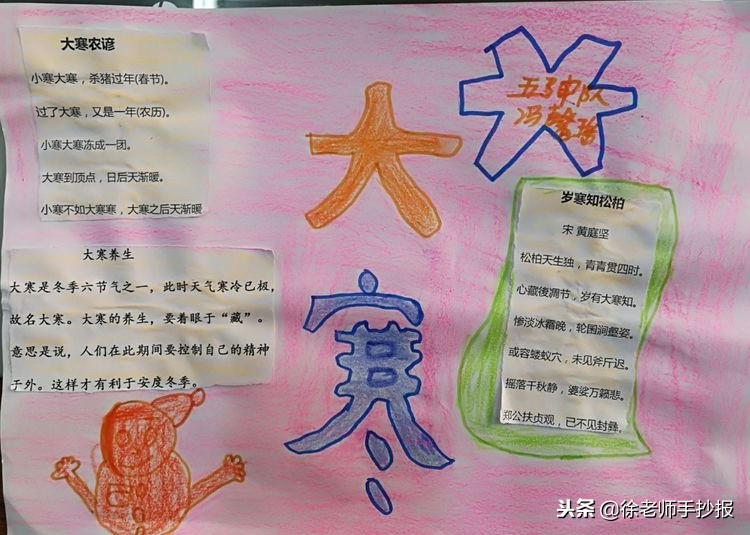 大寒农谚
小寒大寒，杀猪过年(春节)。
过了大寒，又是一年(农历)。
小寒大寒冻成一团。
大寒到顶点，日后天渐暖。
小寒不如大寒寒，大寒之后天渐暖
大寒养生
大寒是冬季六节气之一，此时天气寒冷已极，
故名大寒。大寒的养生，要着眼于“藏”。
意思是说，人们在此期间要控制自己的精神
于外。这样才有利于安度冬季。
大
寒
五3中队
冯馨
岁寒知松柏
宋 黄庭坚
松柏天生独，青青贯四时。
心藏後凋节，岁有大寒知。
惨淡冰霜晚，轮囷涧壑姿。
或容蝼蚁穴，未见斧斤迟。
摇落千秋静，婆娑万籁悲。
郑公扶贞观，已不见封彝。
头条 @徐老师手抄报